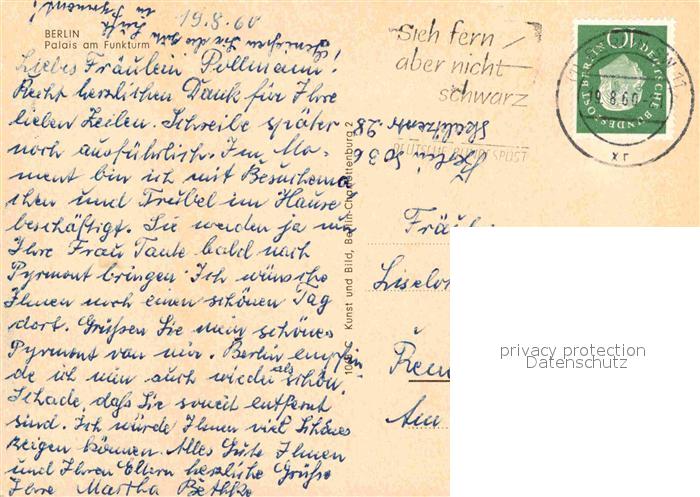 19.8.60
BERLIN
Palais am Funkturm
Genießen Sie die gute
Luft
in
Pyrmont!
Liebes Fräulein Pollmann!
Recht herzlichen Dank für Ihre
lieben Zeilen. Schreibe später
noch ausführlich. Im Mo-
ment bin ich mit Besuchema-
chen und Trubel im Hause
beschäftigt. Sie werden ja nun
Ihre Frau Tante bald nach
Pyrmont bringen. Ich wünsche
Ihnen noch einen schönen Tag
dort. Grüßen Sie mein schönes
Pyrmont von mir. Berlin empfin-
de ich nun auch wieder als schön.
Schade, daß Sie soweit entfernt
sind. Ich würde Ihnen viel Schönes
zeigen können. Alles Gute Ihnen
und Ihren Eltern herzliche Grüße
Ihre Martha Bethke
Kunst und Bild, Berlin-Charlottenburg 2
Sieh fern
aber nicht
schwarz
DEUTSCHE BUNDESPOST
Berlin SO 36
28
DEUTSCHE BUNDESPOST BERLIN
19.8.60
xr
Fräulein
Am
privacy protection
Datenschutz